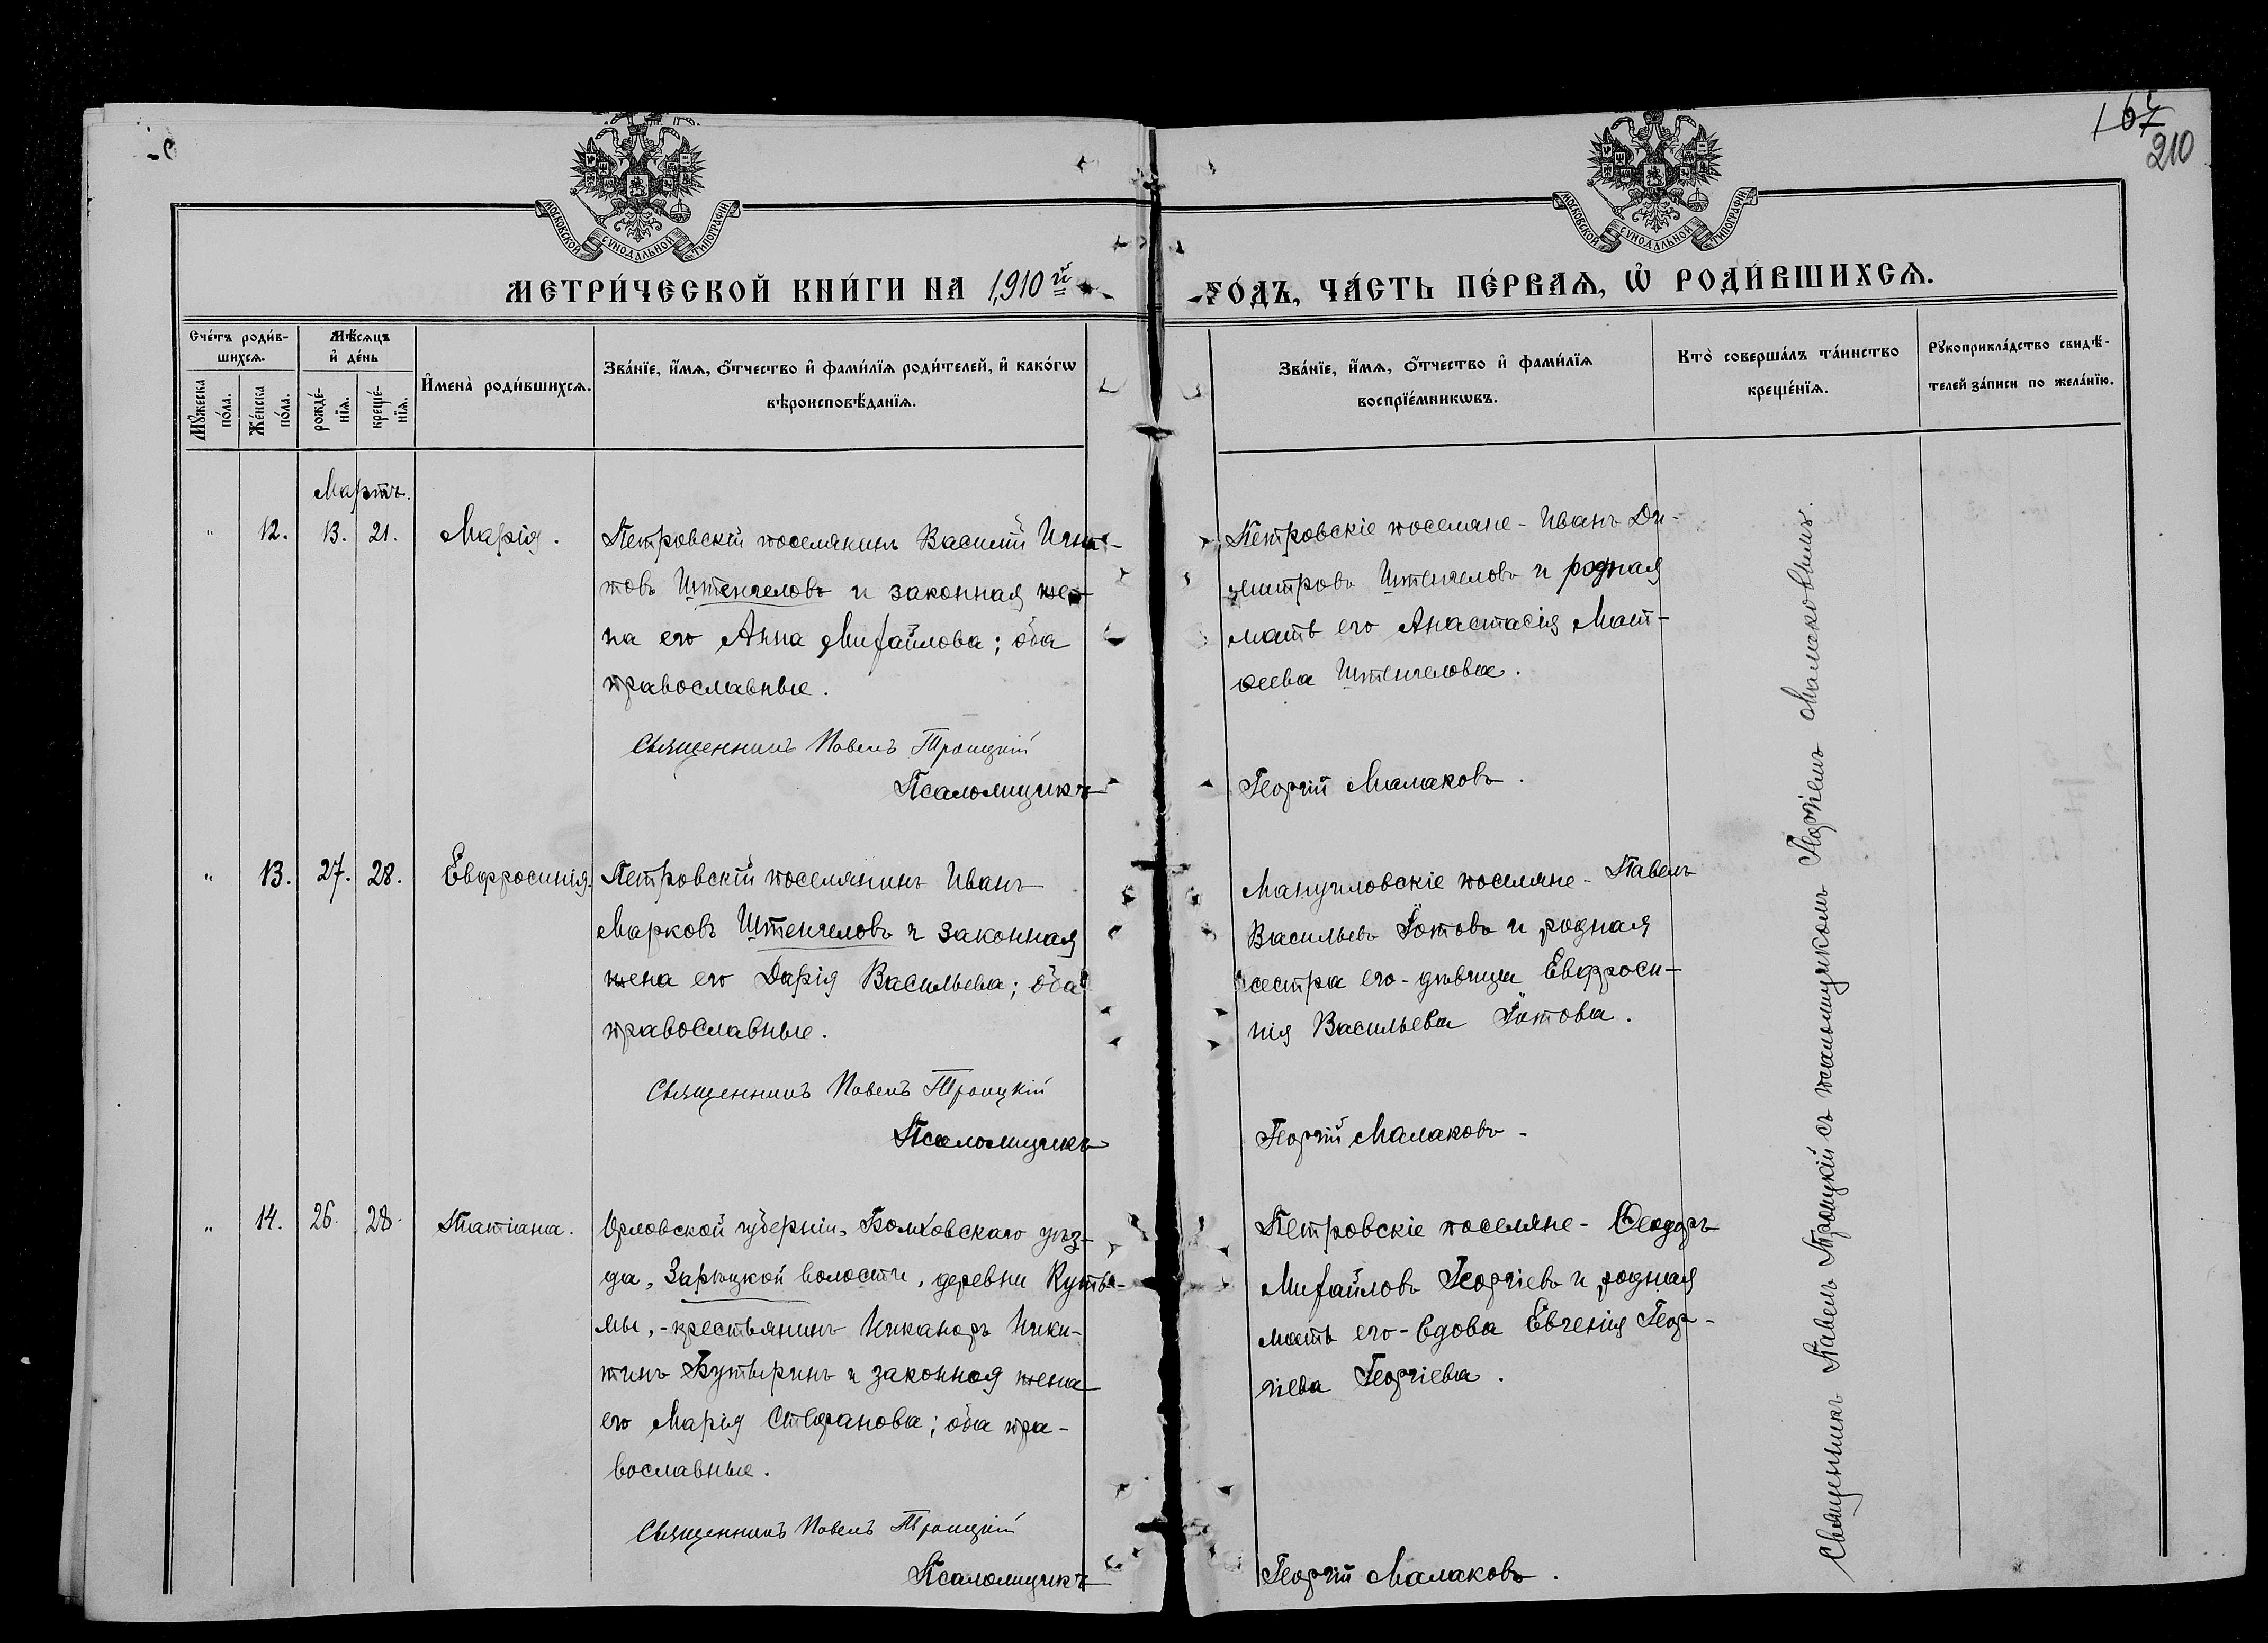 167
210
МОСКОВСКОЙ СѴНОДАЛЬНОЙ ТИПОГРАФІИ
МОСКОВСКОЙ СѴНОДАЛЬНОЙ ТИПОГРАФІИ
МЕТРИ́ЧЕСКОЙ КНИ́ГИ НА 1910й
ГО́ДЪ, ЧА́СТЬ ПЕ́РВАѦ, Ѽ РОДИ́ВШИХСѦ.
Сче́тъ роди́в-
шихсѧ.
Мꙋ́жеска
по́ла.
Же́нска
по́ла.
Мѣ́сѧцъ
и҆ де́нь
рожде́-
нїѧ.
креще́-
нїѧ.
И҆мена̀ роди́вшихсѧ.
Зва́нїе, и҆́мѧ, ѻ҆́тчество и҆ фами́лїѧ роди́телей, и҆ како́гѡ
вѣроисповѣ́данїѧ.
Зва́нїе, и҆́мѧ, ѻ҆́тчество и҆ фами́лїѧ
воспрїе́мникѡвъ.
Кто̀ соверша́лъ та́инство
креще́нїѧ.
Рꙋкоприкла́дство свидѣ́-
телей за́писи по жела́нїю.
Мартъ.
" 12. 13. 21. Марія.
Петровскій поселянинъ Василій Игна-
товъ Штенгеловъ и законная же-
на его Анна Михайлова; оба
православные.
Священникъ Павелъ Троицкій
Псаломщикъ
Петровскіе поселяне - Иванъ Ди-
митровъ Штенгеловъ и родная
мать его Анастасія Мат-
ѳеева Штенгелова.
Георгій Малаковъ.
" 13. 27. 28. Евфросинія.
Петровскій поселянинъ Иванъ
Марковъ Штенгеловъ и законная
жена его Дарія Васильева; оба
православные.
Священникъ Павелъ Троицкій
Псаломщикъ
Мангуловскіе поселяне - Павелъ
Васильевъ Іотовъ и родная
сестра его - дѣвица Евфроси-
нія Васильева Іотова.
Георгій Малаковъ.
" 14. 26. 28. Татіана.
Орловской губерніи, Болховскаго уѣз-
да, Зарѣцкой волости, деревни Куть
мы, - крестьянинъ Никаноръ Ники-
тинъ Бутыринъ и законная жена
его Марія Стефанова; оба пра-
вославные.
Священникъ Павелъ Троицкій
Псаломщикъ
Петровскіе поселяне - Ѳеодоръ
Михайловъ Георгіевъ и родная
мать его - вдова Евгенія Геор-
гіева Георгіева.
Георгій Малаковъ.
Священникъ Павелъ Троицкій съ псаломщикомъ Георгіемъ Малаковымъ.